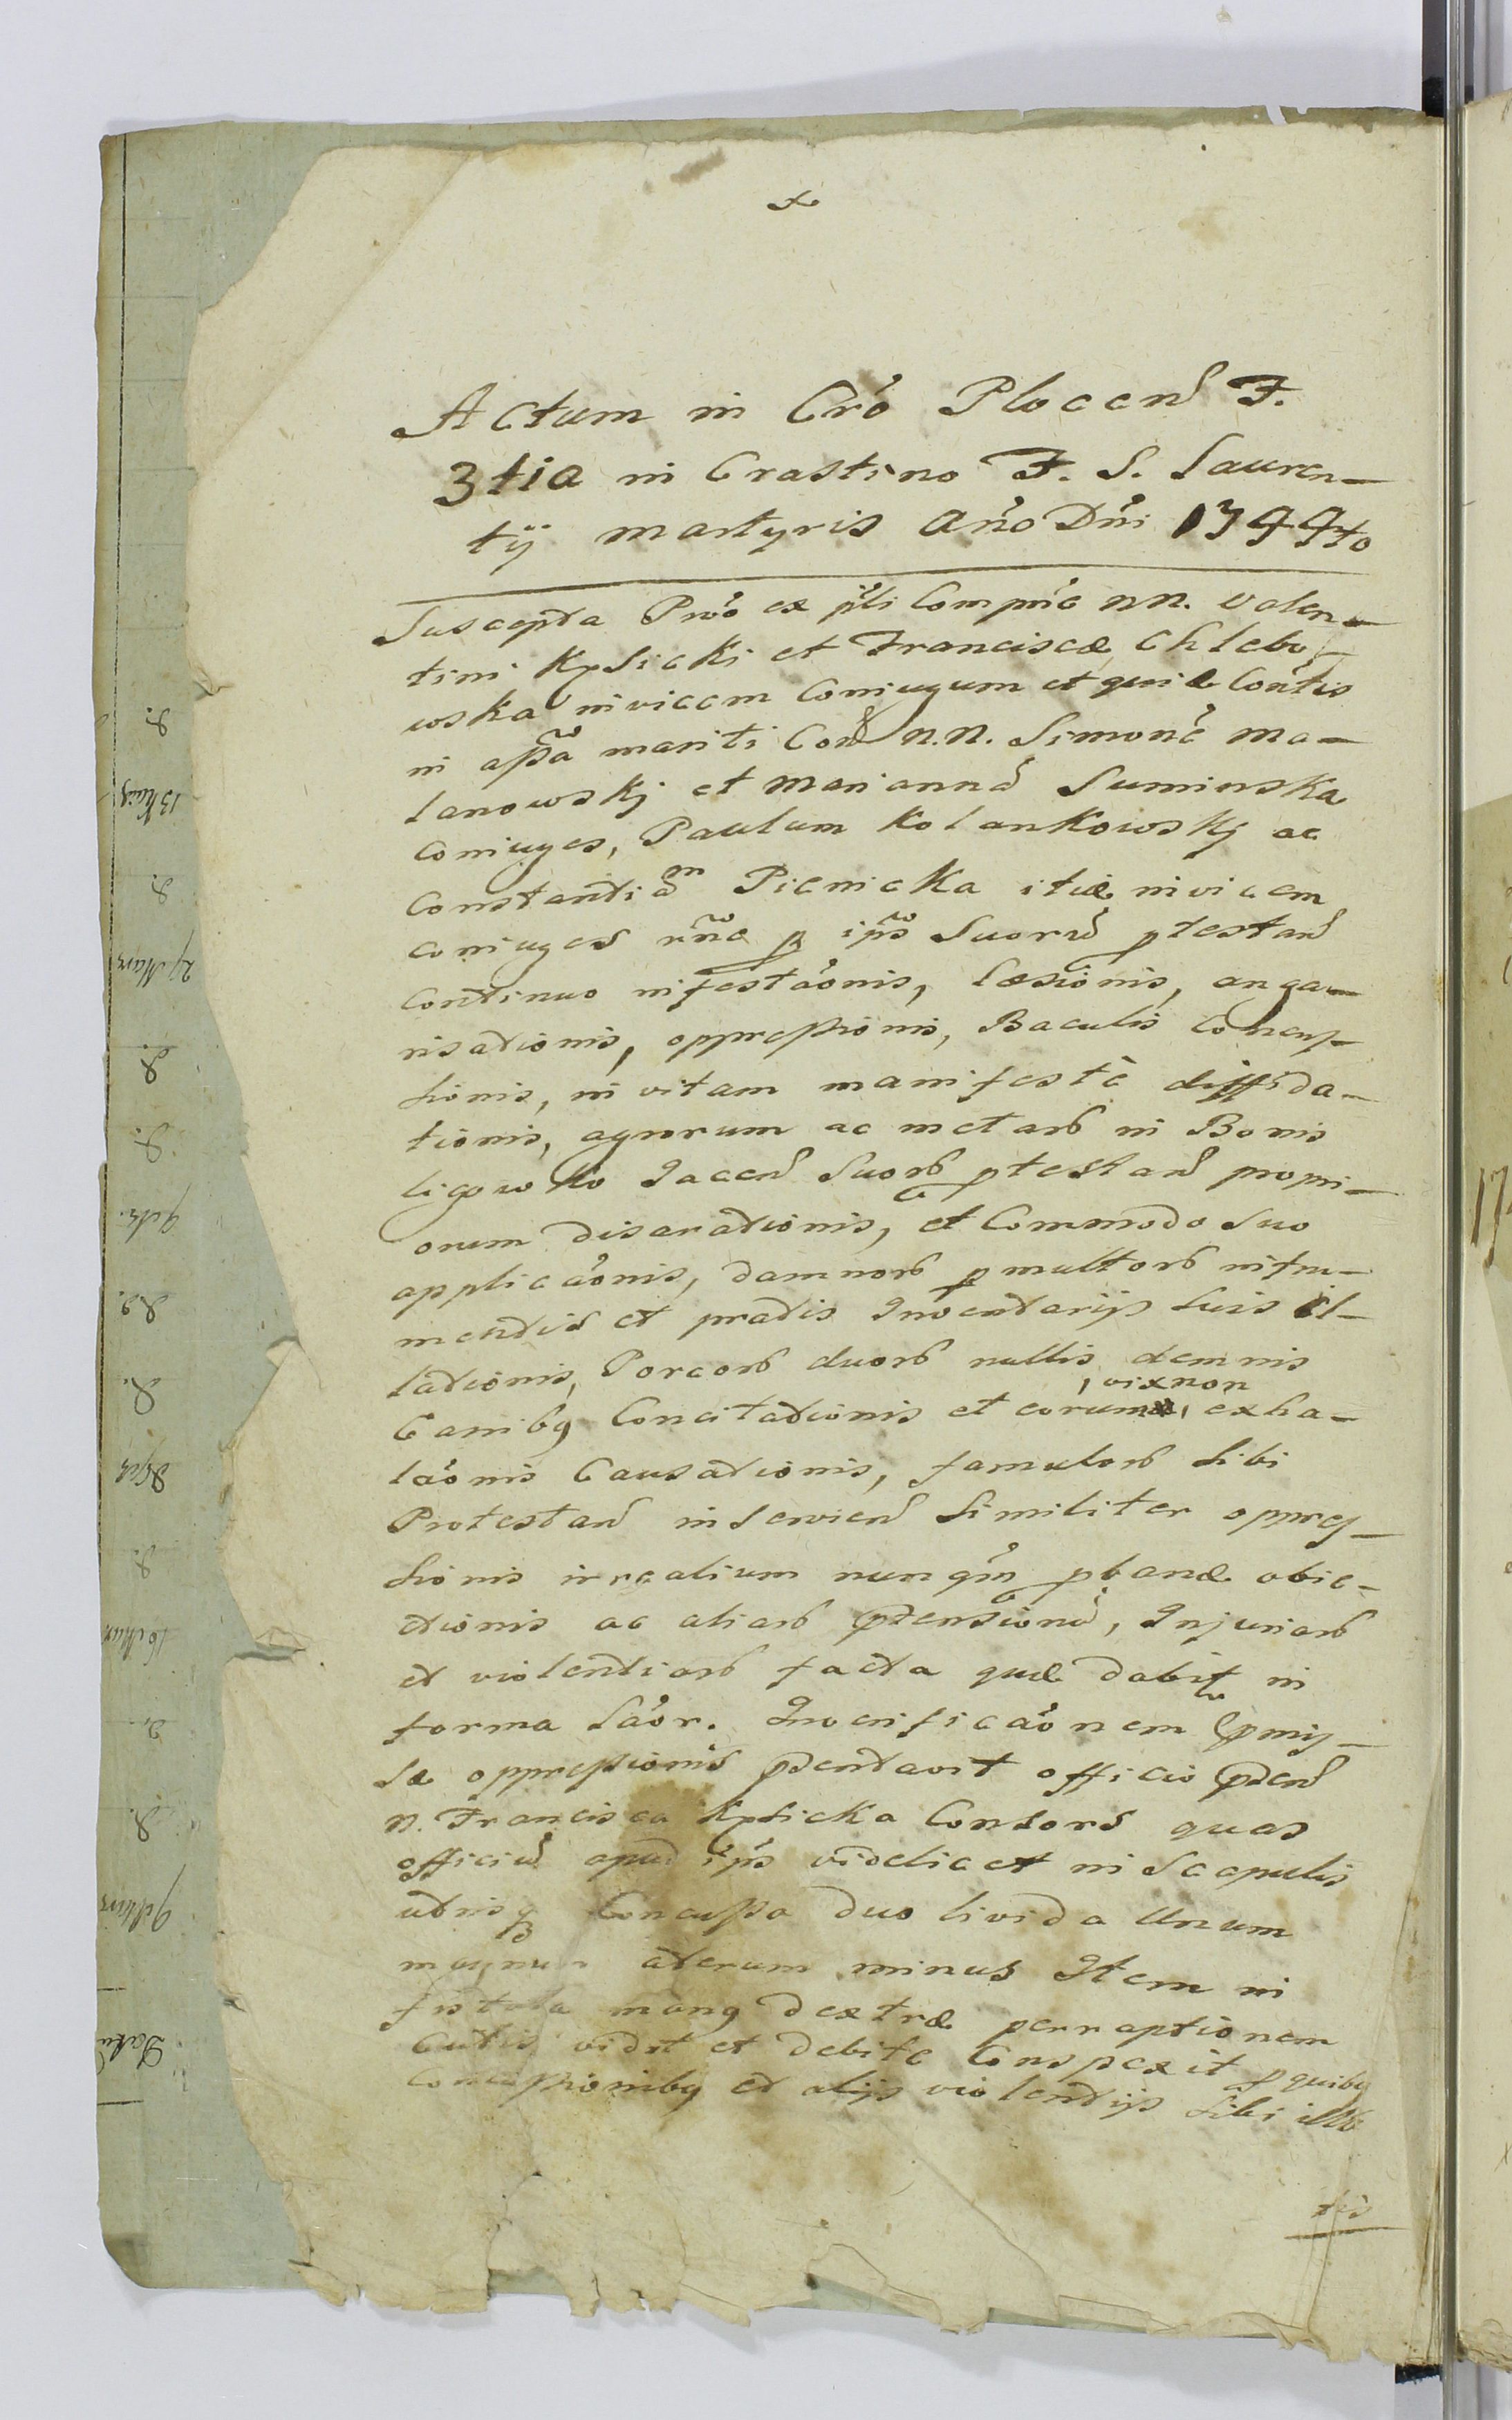 Actum in Crô Plocen F.
3tia in Crastino F. S. Lauren-
tij Martyris Año Dñi 1744to
Suscepta Prô ex pli Compñe NN. Valen-
tini Kęsicki et Franciscæ Chlebo-
wska invicem Coniugum et quidē Coñtis
in aßa mariti Con N.N. Simonē Ma-
lanowskj et Mariannā Suminska
Coniuges, Paulum Kolankowskj ac
Constantiam Picnicka itidē invicem
Coniuges rñe p ipõ Suorū ptestan
Continuo infestaõnis, Læsionis, anga-
risationis, oppreßionis, Baculis Concus-
sionis, in vitam manifestè diffida-
tionis, agrorum ac metarū in Bonis
Ligowko Jacen Suorū ptestan propri-
orum disarationis, et Commodo suo
applicaõnis, damnorū p multorū in fru-
mentis et pratis Inventarijs suis il-
lationis, Porcorū duorū nullis demnis
Canibq Concitationis et eorum, exha-
, vix non
laõnis Causationis, famulorū sibi
Protestan inservien similiter oppres-
sionis irrealium nunqm pbandæ obie-
ctionis ac aliarū ptensionū, Injuriarū
et violentiarū facta quæ dabit in
forma Laõr. In verificaõnem pmis-
sæ oppreßionis pdentavit officio pden
N. Francisca Kęsicka Consors quas
officiū apud ipõ videlicet in Scapulis
utrisq Concußa duo livida Unum
magnum alterum minus Item in
fistula manq dextræ perruptionem
Cutis vidit et debite Conspexit p quibq
Concußionibq et alijs violentijs sibi illa
tis